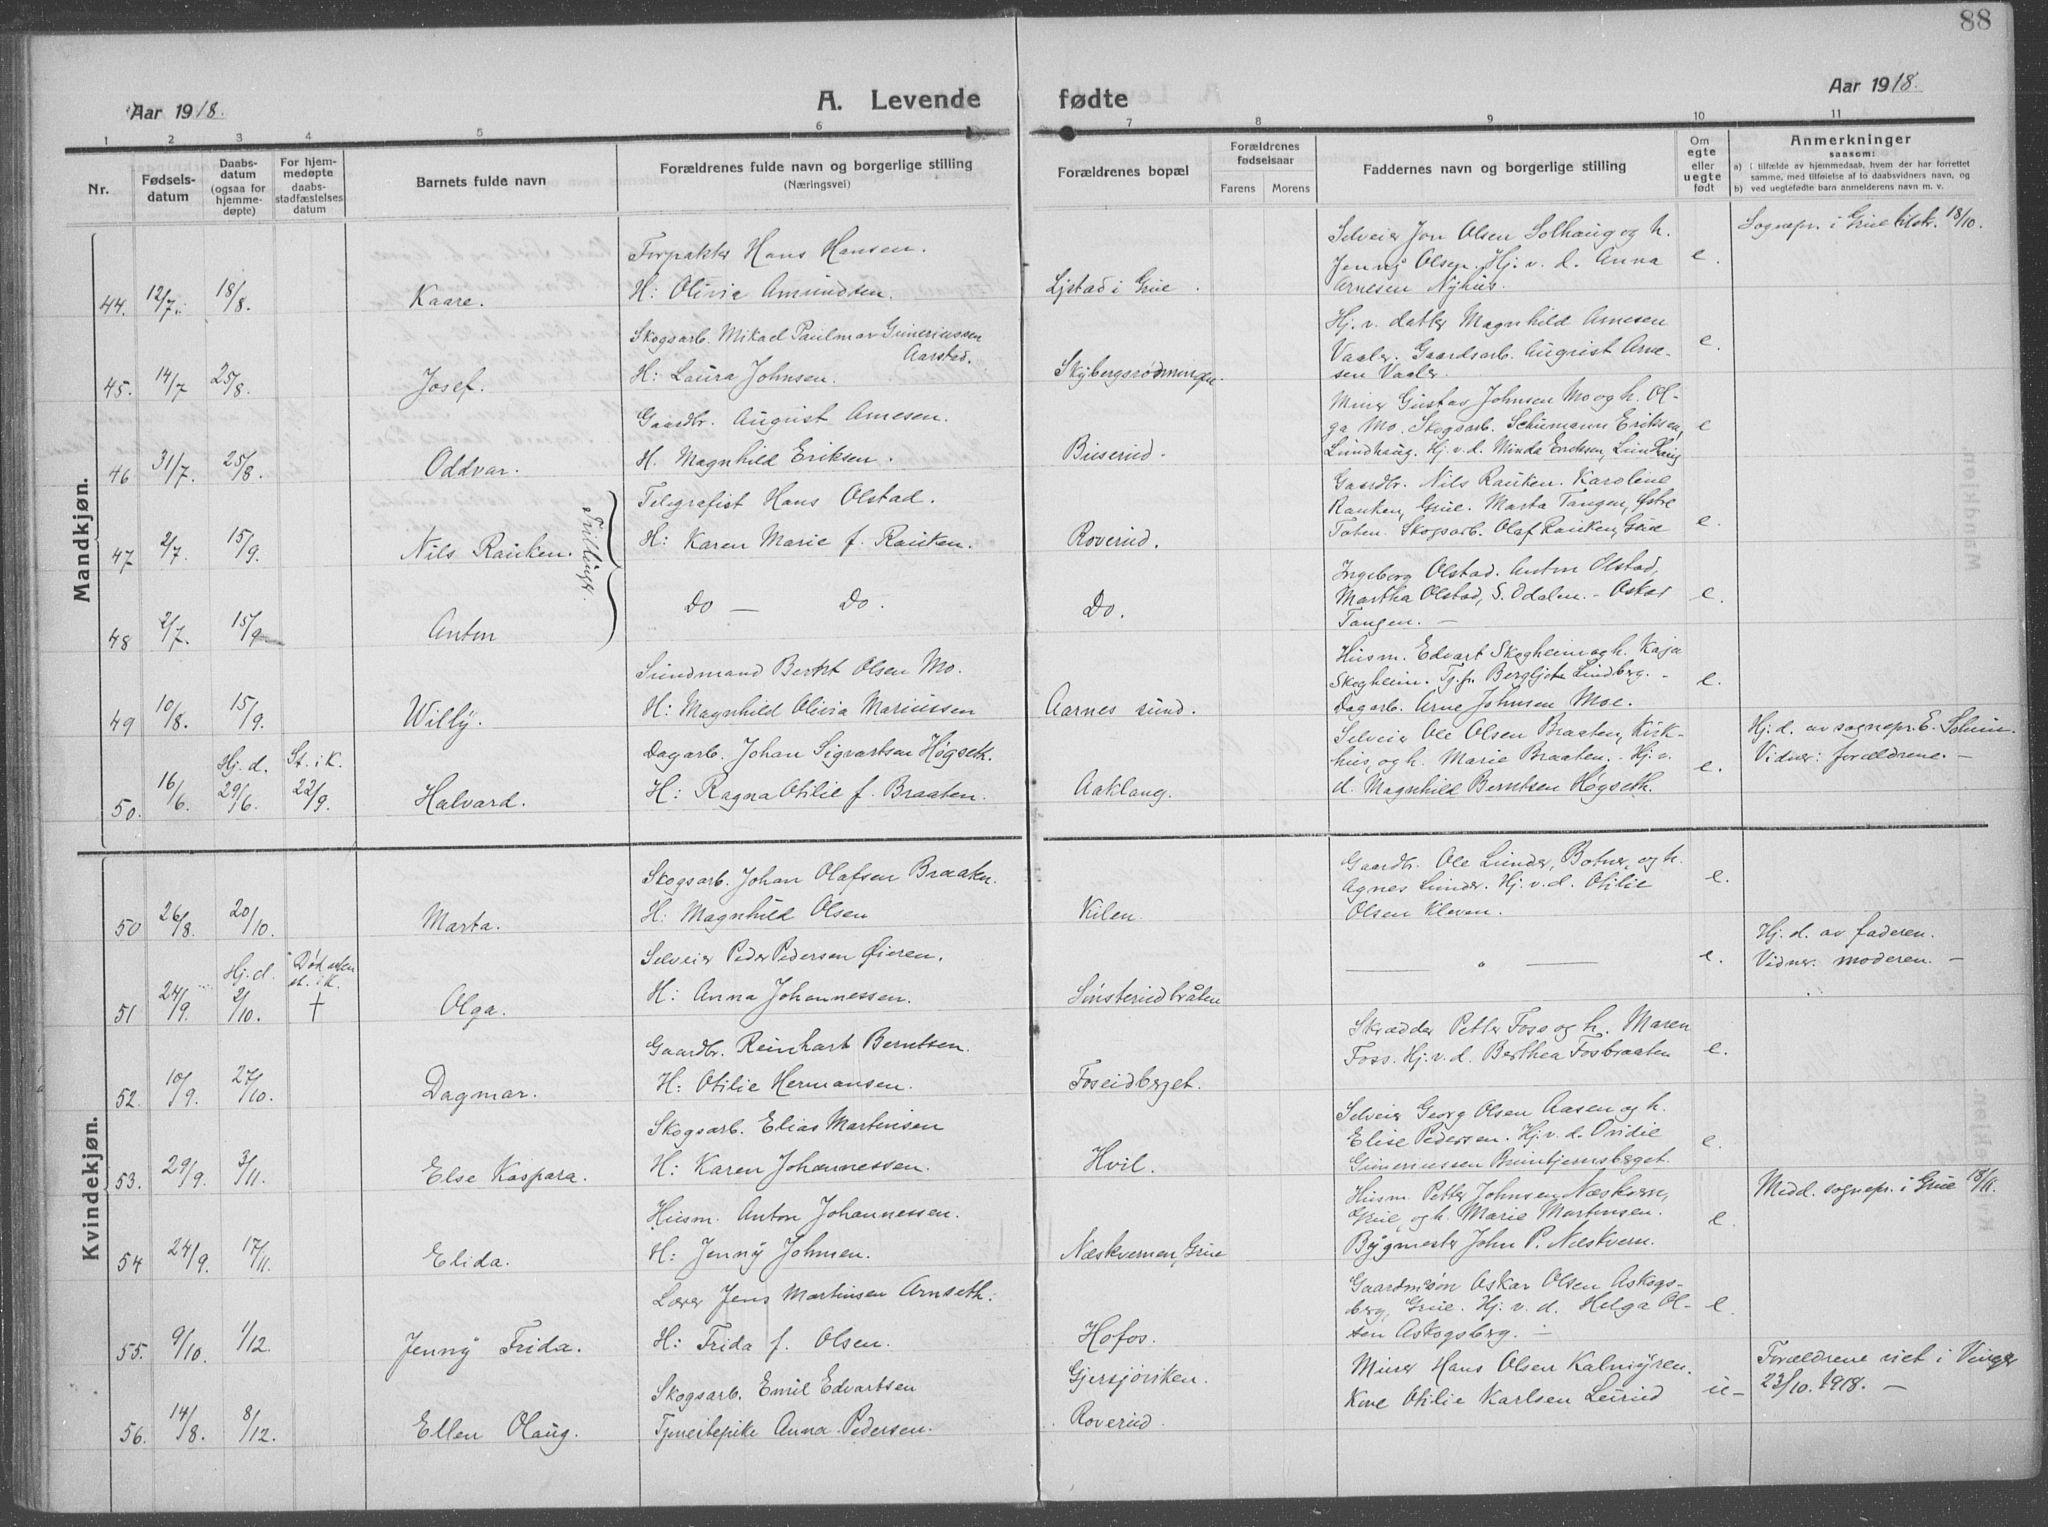 88
Aar 1918.
A. Levende fødte
Aar 1918.
1 2 3 4 5 6 7 8 9 10 11
Nr.
Fødsels-
datum
Daabs-
datum
(ogsaa for
hjemme-
døpte)
For hjem-
medøpte
daabs-
stadfæstelses
datum
Barnets fulde navn
Forældrenes fulde navn og borgerlige stilling
(Næringsvei)
Forældrenes bopæl
Forældrenes
fødselsaar
Farens Morens
Faddernes navn og borgerlige stilling
Om
egte
eller
uegte
født
Anmerkninger
saasom:
a) I tilfælde av hjemmedaab, hvem der har forrettet
samme, med tilføielse af to daabsvidners navn, og
b) ved uegtefødte barn anmelderens navn m. v.
Mandkjøn.
44. 12/7. 18/8. Kaare.
Forpakter Hans Hansen.
H: Olivia Amundsen.
Ljstad i Grue.
Selveier Jon Olsen Solhaug og h.
Jenny Olsen. Hj. v. d. Anna
Arnesen Nyhus.
e.
Sognepr. i Grue tilskr. 18/10.
45. 14/7 25/8. Josef.
Skogsarb. Mikael Paulmar Guneriussen
Aarstad.
H: Laura Johnsen.
Skybergsrødningen.
Hj. v. datter Magnhild Arnesen
Vaaler. Gaardsarb. August Arne-
sen Vaaler.
e.
46 31/7. 25/8. Oddvar.
Gaardbr. August Arnesen.
H. Magnhild Eriksen.
Buserud.
Murer Gustav Johnsen Mo og h. Ol-
ga Mo. Skogsarb. Schumann Eriksen,
Lundhaug. Hj. v. d. Minda Eriksen, Lundhaug
e
47 2/7. 15/9. Nils Rauken.
Tvillinger.
Telegrafist Hans Olstad.
H: Karen Marie f. Rauken.
Roverud.
Gaardbr. Nils Rauken. Karoline
Rauken, Grue. Marta Tangen, Østre
Toten. Skogsarb. Olaf Rauken, Grue
e.
48 2/7. 15/9. Anton
Do — Do.
Do.
Ingeborg Olstad. Anton Olstad,
Martha Olstad, S. Odalen. - Oskar
Tangen. —
e.
49 10/8. 15/9. Willy.
Sundmand Bernt Olsen Mo.
H: Magnhild Olivia Mariussen
Aarnes sund.
Husm. Edvart Skogheim og h. Kaja
Skogheim. Tj.p. Bergljot Lindberg. -
Dagarb. Arne Johnsen Moe.
e.
50. 16/6. Hj. d. 29/6. St. i K. 22/9. Halvard.
Dagarb. Johan Sigvartsen Høgseth.
H: Ragna Otilie f. Braaten.
Aaklang.
Selveier Ole Olsen Braaten, Kirk-
hus, og h. Marie Braaten. Hj. v.
d. Magnhild Berntsen Høgseth.
e.
Hj. d. av sognepr. E.
Vidner: forældrene. —
Kvindekjøn.
50 26/8. 20/10. Marta.
Skogsarb. Johan Olafsen Braaten.
H: Magnhild Olsen
Kilen.
Gaardbr. Ole Lunder, Botner, og h.
Agnes Lunder. Hj. v. d. Otilie
Olsen Kleven.
e.
51 24/9. Hj. d. 2/10. Død uden st. i K. † Olga.
Selveier Peder Pedersen Øieren.
H: Anna Johannessen.
Sinsterudbråten
— " —
e.
Hj. d. av faderen.
Vidner. moderen. —
52. 10/9. 27/10. Dagmar.
Gaardbr. Reinhart Berntsen.
H: Otilie Hermansen.
Foseidberget.
Skrædder Petter Foss og h. Maren
Foss. Hj. v. d. Berthea Fosbraaten
e.
53. 29/9. 3/11. Else Kaspara.
Skogsarb. Elias Martinsen
H: Karen Johannessen.
Hvil.
Selveier Georg Olsen Aasen og h.
Elise Pedersen. Hj. v. d. Ovidie
Guneriussen Bruntjernsberget.
e.
54 24/9. 17/11. Elida.
Husm. Anton Johannessen.
H: Jenny Johnsen.
Næskvernen, Grue
Husm. Petter Johnsen Næskvern,
Grue, og h. Marie Martinsen.
Bygmester John P. Næskvern.
e.
Medd. sognepr. i Grue 18/11.
55. 9/10. 1/12. Jenny Frida.
Lærer Jens Martinsen Arnseth:
H: Frida f. Olsen.
Hofos.
Gaardmsøn Askar Olsen Askogs-
berg, Grue. Hj. v. d. Helga Ol-
sen Askogsberg. —
e.
56. 14/8. 8/12. Ellen Olaug.
Skogsarb. Emil Edvartsen
Tjenestepike Anna Pedersen.
Gjersjøviken.
Roverud.
Murer Hans Olsen Kalmyren.
Kone Otilie Karlsen Leirud
u-
Forældrene viet i Vinger
23/10. 1918. —